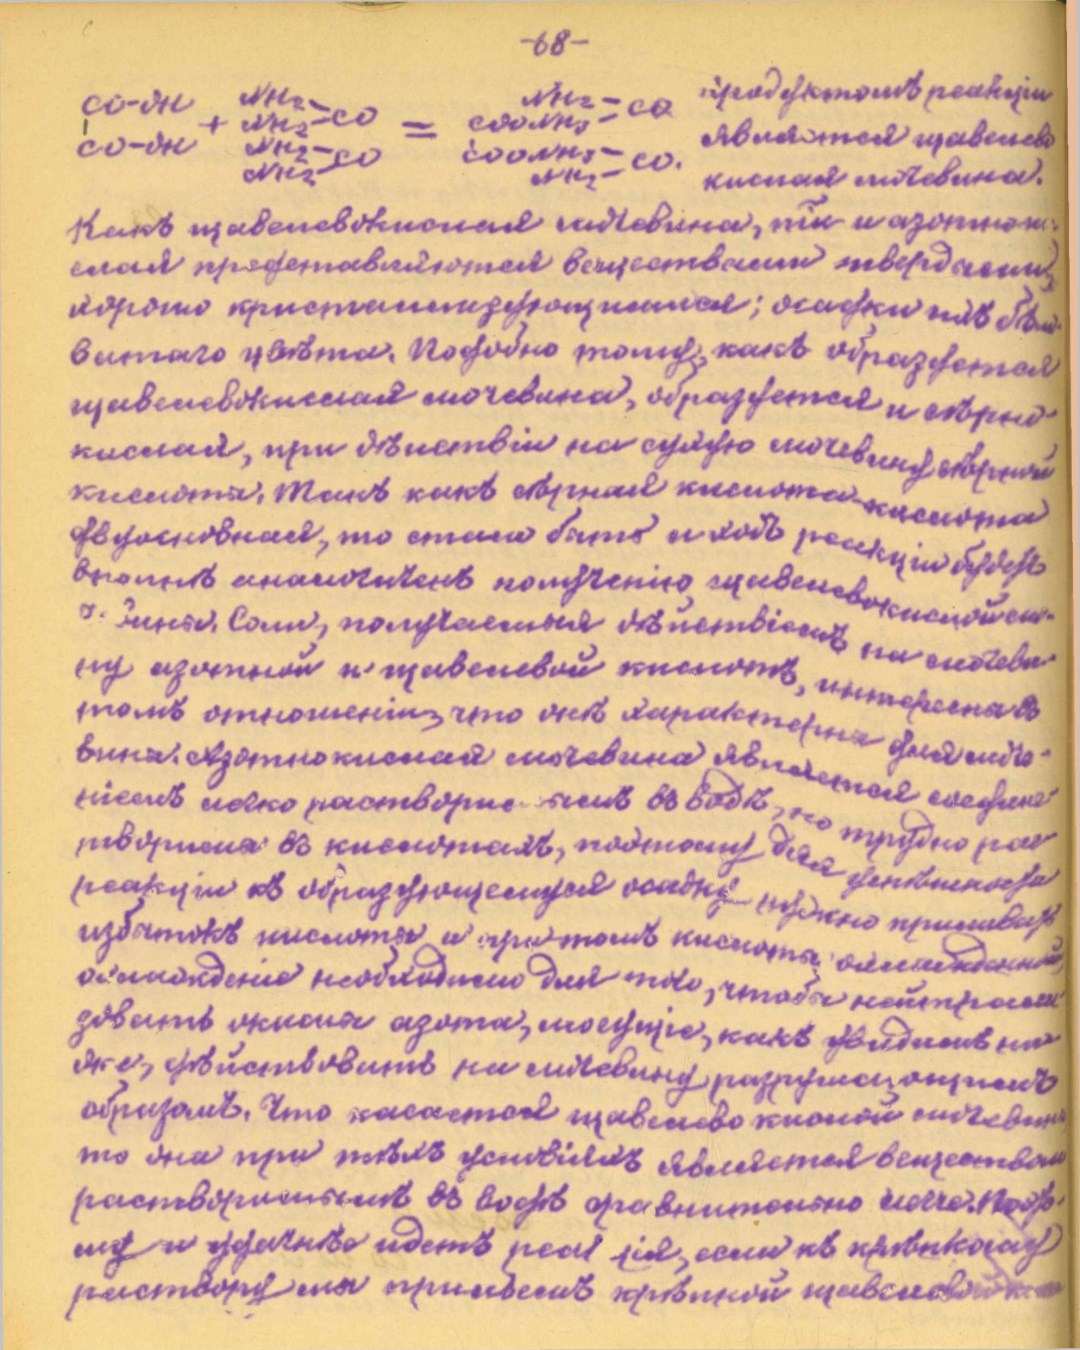 -68-
CO-OH
CO-OH
+
NH2
NH2
CO
NH2
NH2
CO
=
NH2
COONH3
CO
COONH3
NH2
CO.
продуктомъ реакціи
является щавелево
кислая мочевина.
Какъ щавелевокислая мочевина, так и азотноки-
слая представляются веществами твердыми,
хорошо кристаллизующимися; осадки ихъ бѣло-
ватаго цвѣта. Подобно тому, какъ образуется
щавелевокислая мочевина, образуется и сѣрно-
кислая, при дѣйствіи на сухую мочевину сѣрной
кислоты. Такъ какъ сѣрная кислота кислота
двуосновная, то стало быть и ходъ реакціи будетъ
вполнѣ аналогиченъ полученію щавелевокислой мо-
чевины. Соли, получаемыя дѣйствіемъ на мочеви-
ну азотной и щавелевой кислотъ, интересны въ
томъ отношеніи, что онѣ характерны для моче-
вины. Азотнокислая мочевина является соедине-
ніемъ легко растворимымъ въ водѣ, но трудно рас-
творима въ кислотахъ, поэтому для успѣшности
реакціи къ образующемуся осадку нужно приливать
избытокъ кислоты и притомъ кислоты охлажденной,
охлажденіе необходимо для того, чтобы нейтрали-
зовать окислы азота, могущіе, какъ увидимъ ни-
же, дѣйствовать на мочевину разрушающимъ
образомъ. Что касается щавелево кислой мочевины
то она при тѣхъ условіяхъ является веществомъ
растворимымъ въ водѣ сравнительно легче. Поэто-
му и удачнѣе идетъ реакція, если къ крѣпкому
раствору мы прильемъ крѣпкой щавелевой